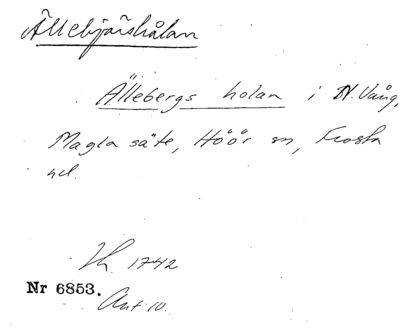 Ällebjärshålan
Ällebergs holan i N. Vång,
Magla säte, Höör sn, Frosta
hd.
Lh 1742
Nr 6853.
Ant 10.